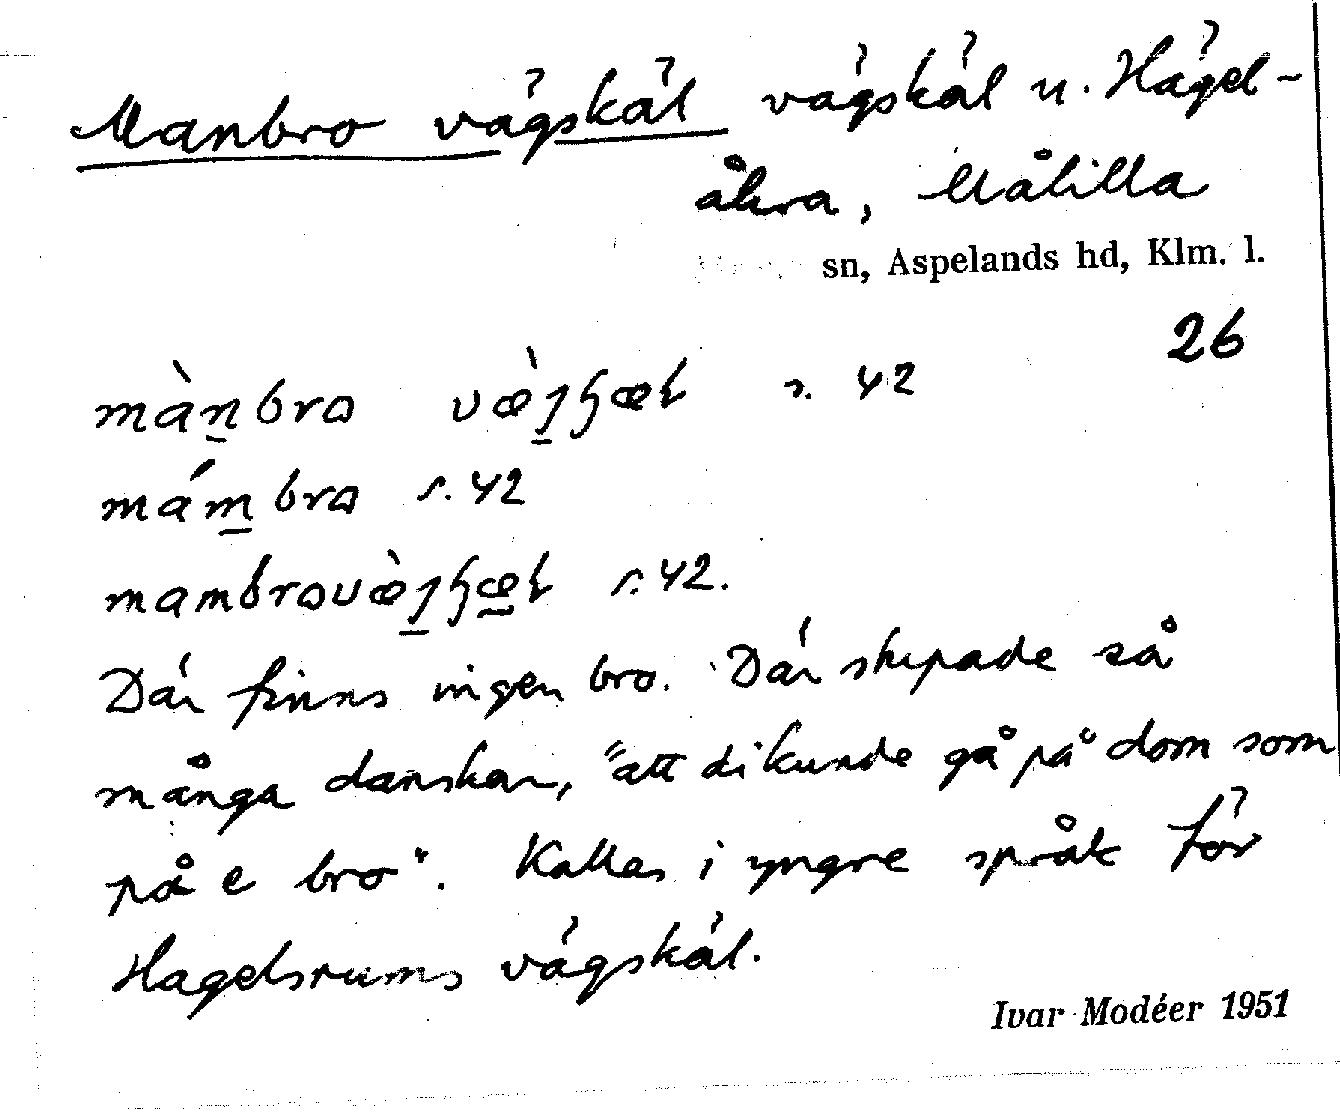 Manbro vägskäl vägskäl n. Hägel-
åkra, Målilla
sn, Aspelands hd, Klm. l.
26
màn̲bro s. 42
mám̲bro s. 42
s. 42.
Där finns ingen bro. Där stupade så
många danskar, "att di kunde gå på dom som
på e bro". Kallas i yngre språk för
Hagelsrums vägskäl.
Ivar Modéer 1951